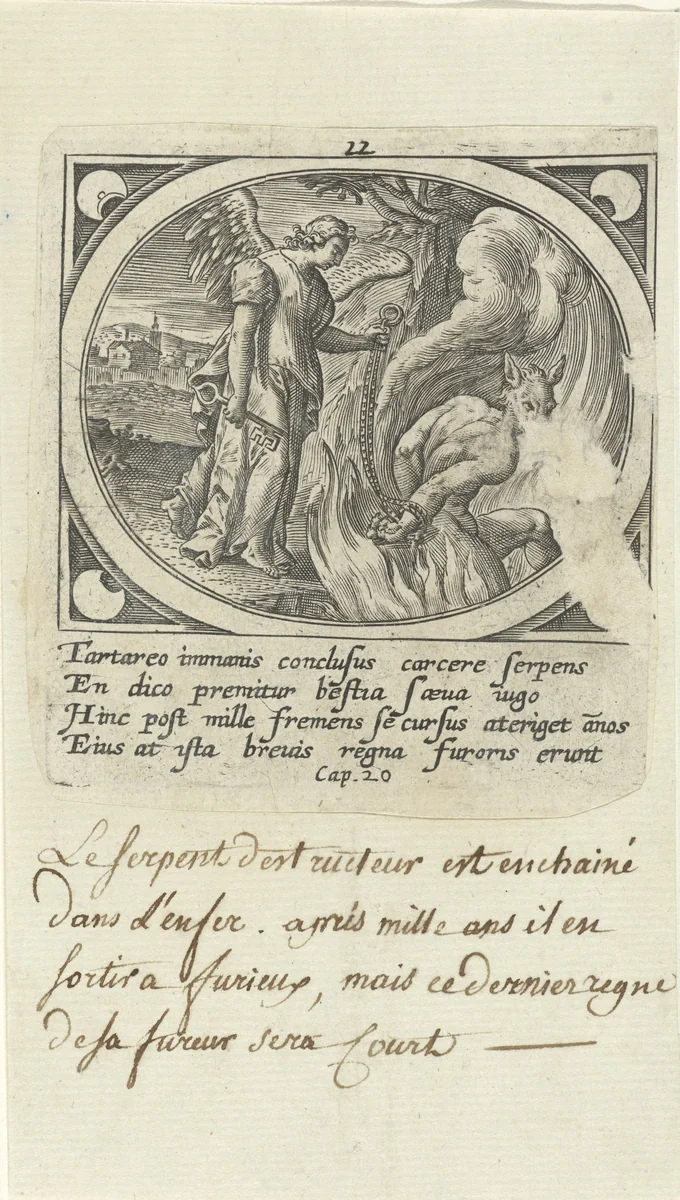 22
Tartareo immanis conclusus carcere serpens
En dico premitur bestia sæva iugo
Hinc post mille fremens se cursus ateriget ãnos
Eius at ista breuis regna furoris erunt
Cap. 20
Le serpent destructeur est enchainé
dans l'enfer. aprés mille ans il en
sortira furieux, mais ce dernier regne
de sa fureur sera Court —